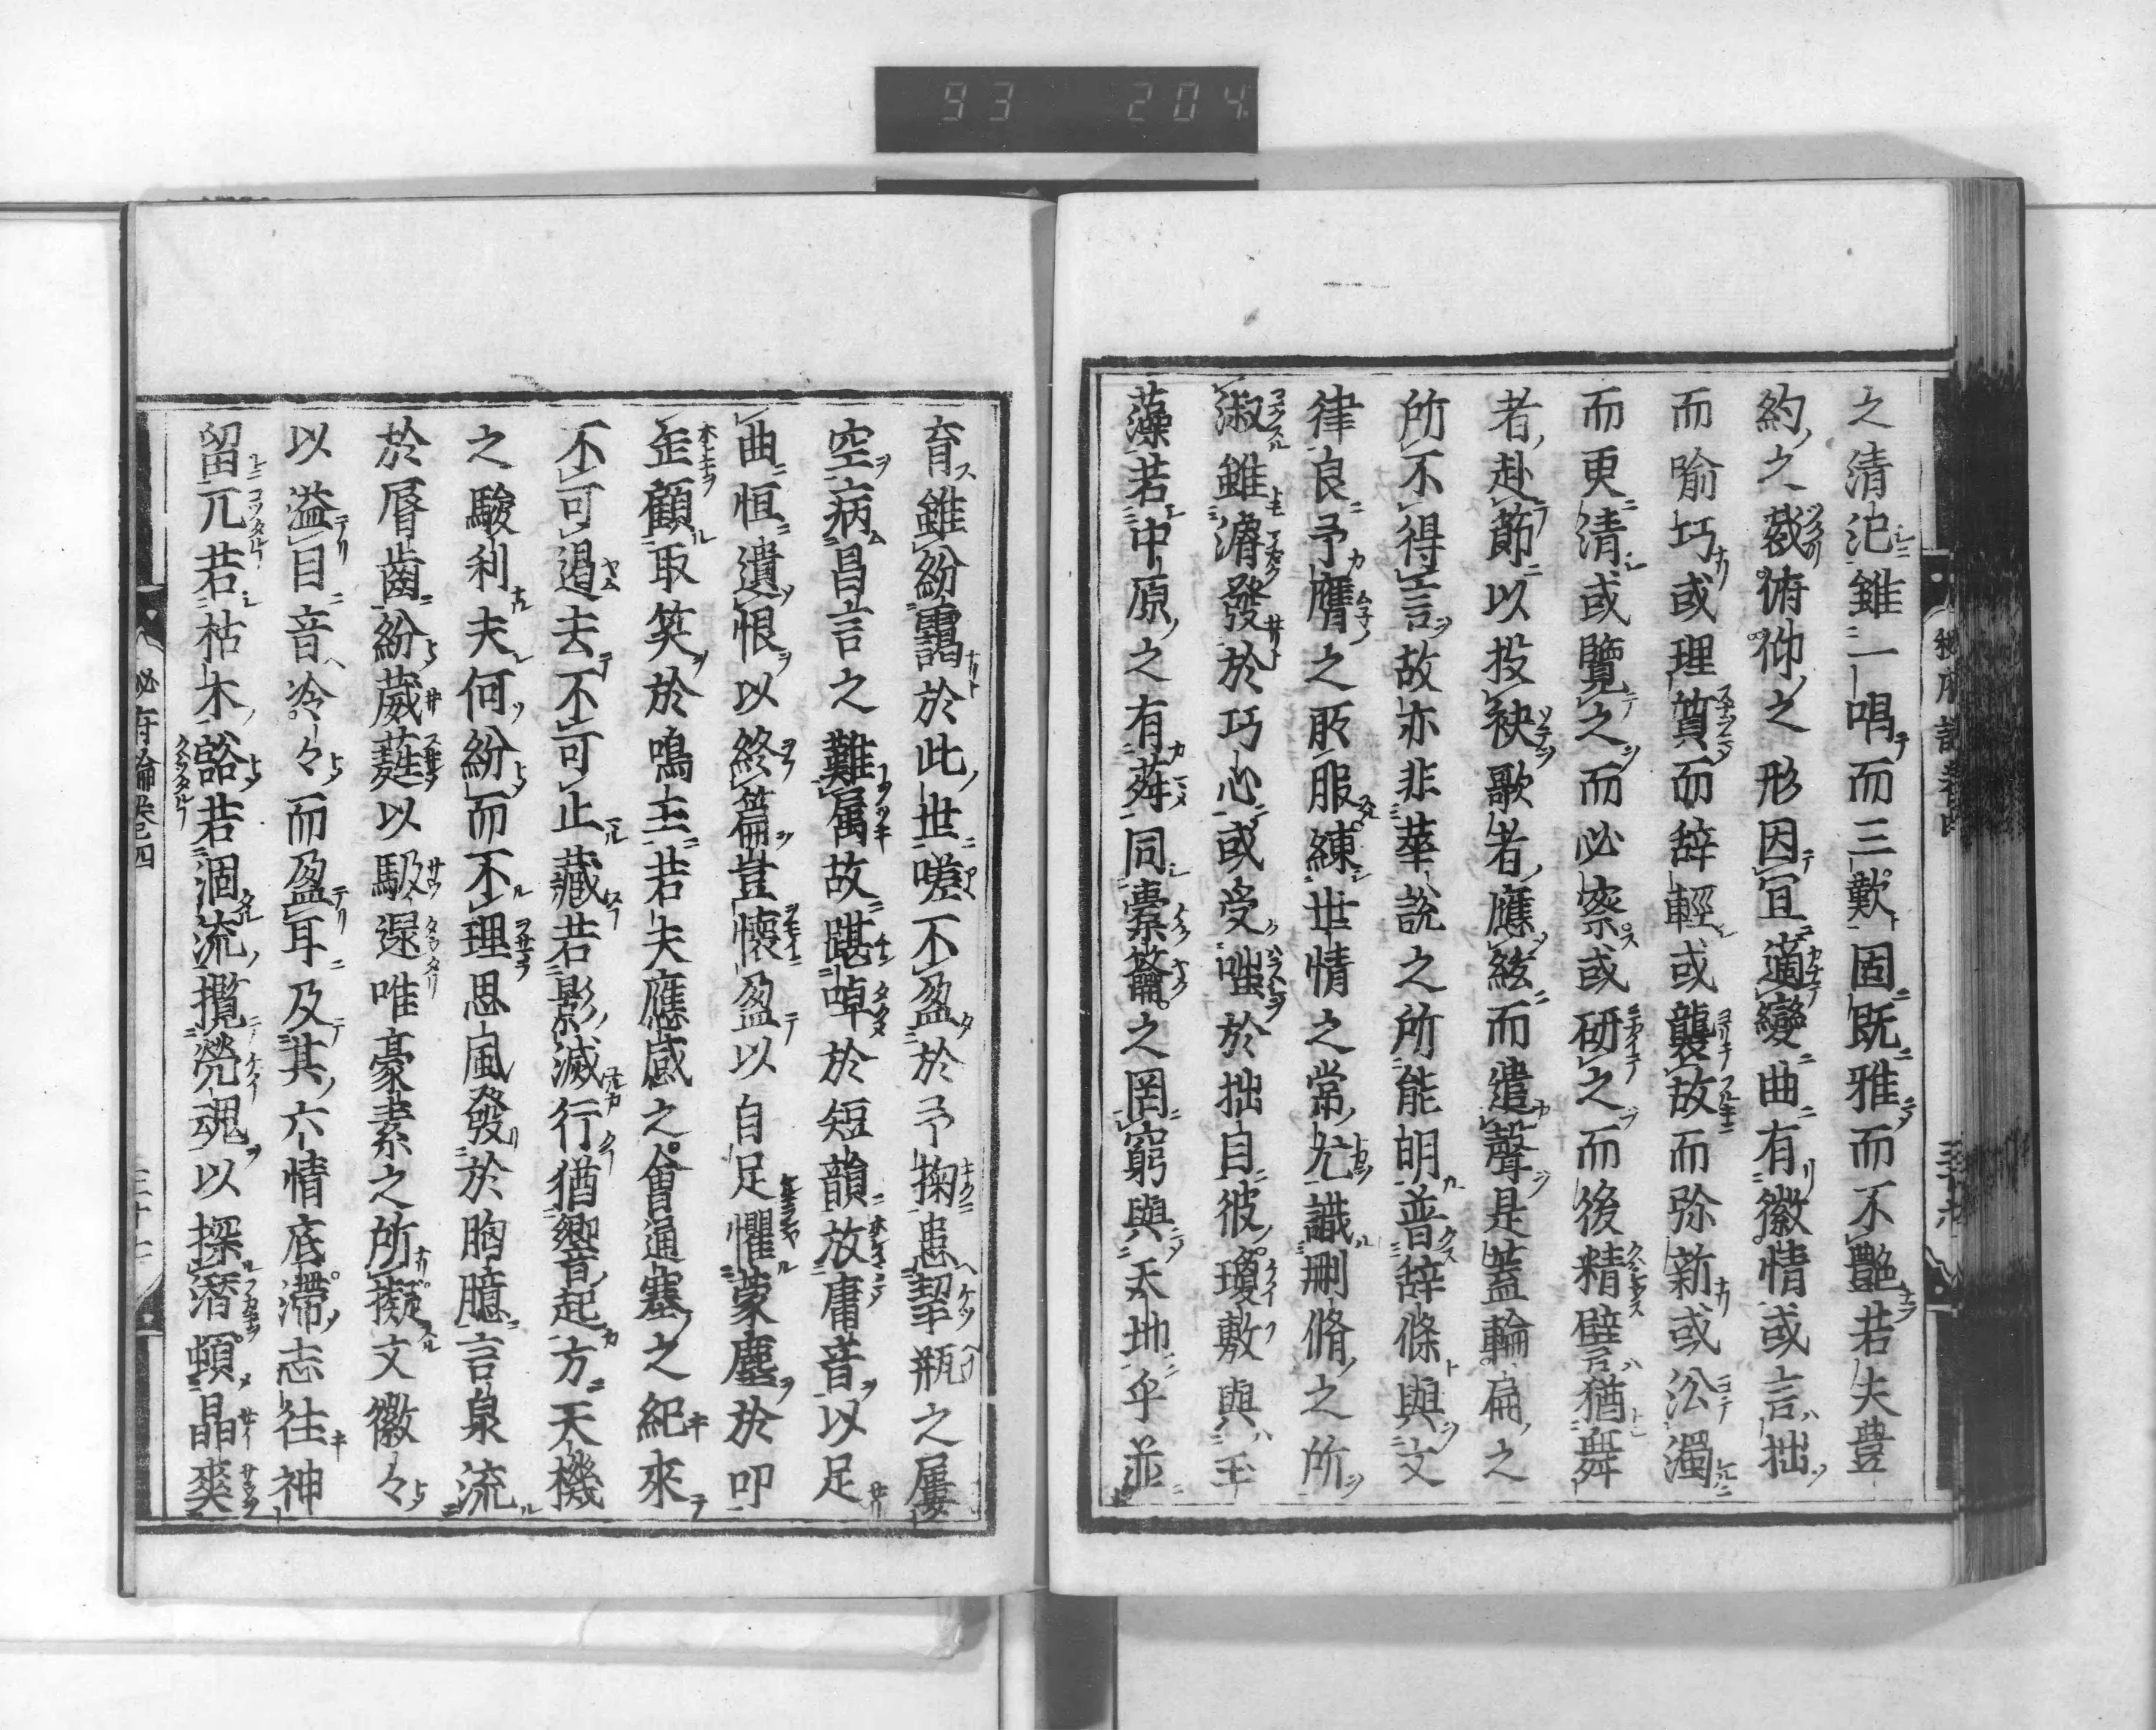 93 204
之清汜雖一唱而三歎固既雅而不艶若夫豊
約之裁俯仰之形因宜適變曲有徽情或言拙
而喻巧或理質而辞輕或襲故而弥新或沿濁
而更清或覽之而必察或研之而後精譬猶舞
者赴節以投袂歌者應絃而遣聲是蓋輪扁之
所不得言故亦非華說之所能明普辞條與文
律良予膺之所服練世情之常尤識刪脩之所
淑雖濬發於巧心或受㗤於拙目彼瓊敷與玉
藻若中原之有菽同橐籥之罔窮與天地乎並
育雖紛靄於此世嗟不盈於予掬患挈瓶之屢
空病昌言之難属故踸踔於短韻放庸音以足
曲恒遺恨以終篇豈懷盈以自足懼蒙塵於叩
缶顧取笑於鳴玉若夫應感之會通塞之紀來
不可遏去不可止藏若影滅行猶響起方天機
之駿利夫何紛而不理思風發於胸臆言泉流
於脣齒紛葳蕤以馺遝唯豪素之所擬文徽々
以溢目音冷々而盈耳及其六情底滯志往神
留兀若枯木豁若涸流攬煢魂以探潛頓晶爽